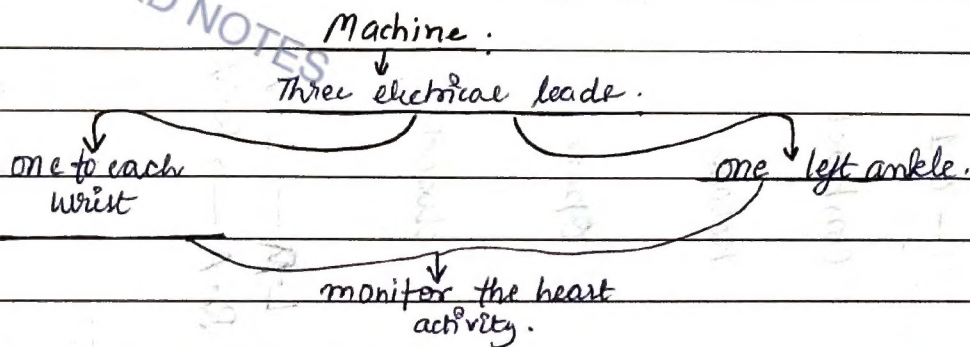 NOTES
Machine.
Three electrical leads.
one to each
wrist
one left ankle.
monitor the heart
activity.